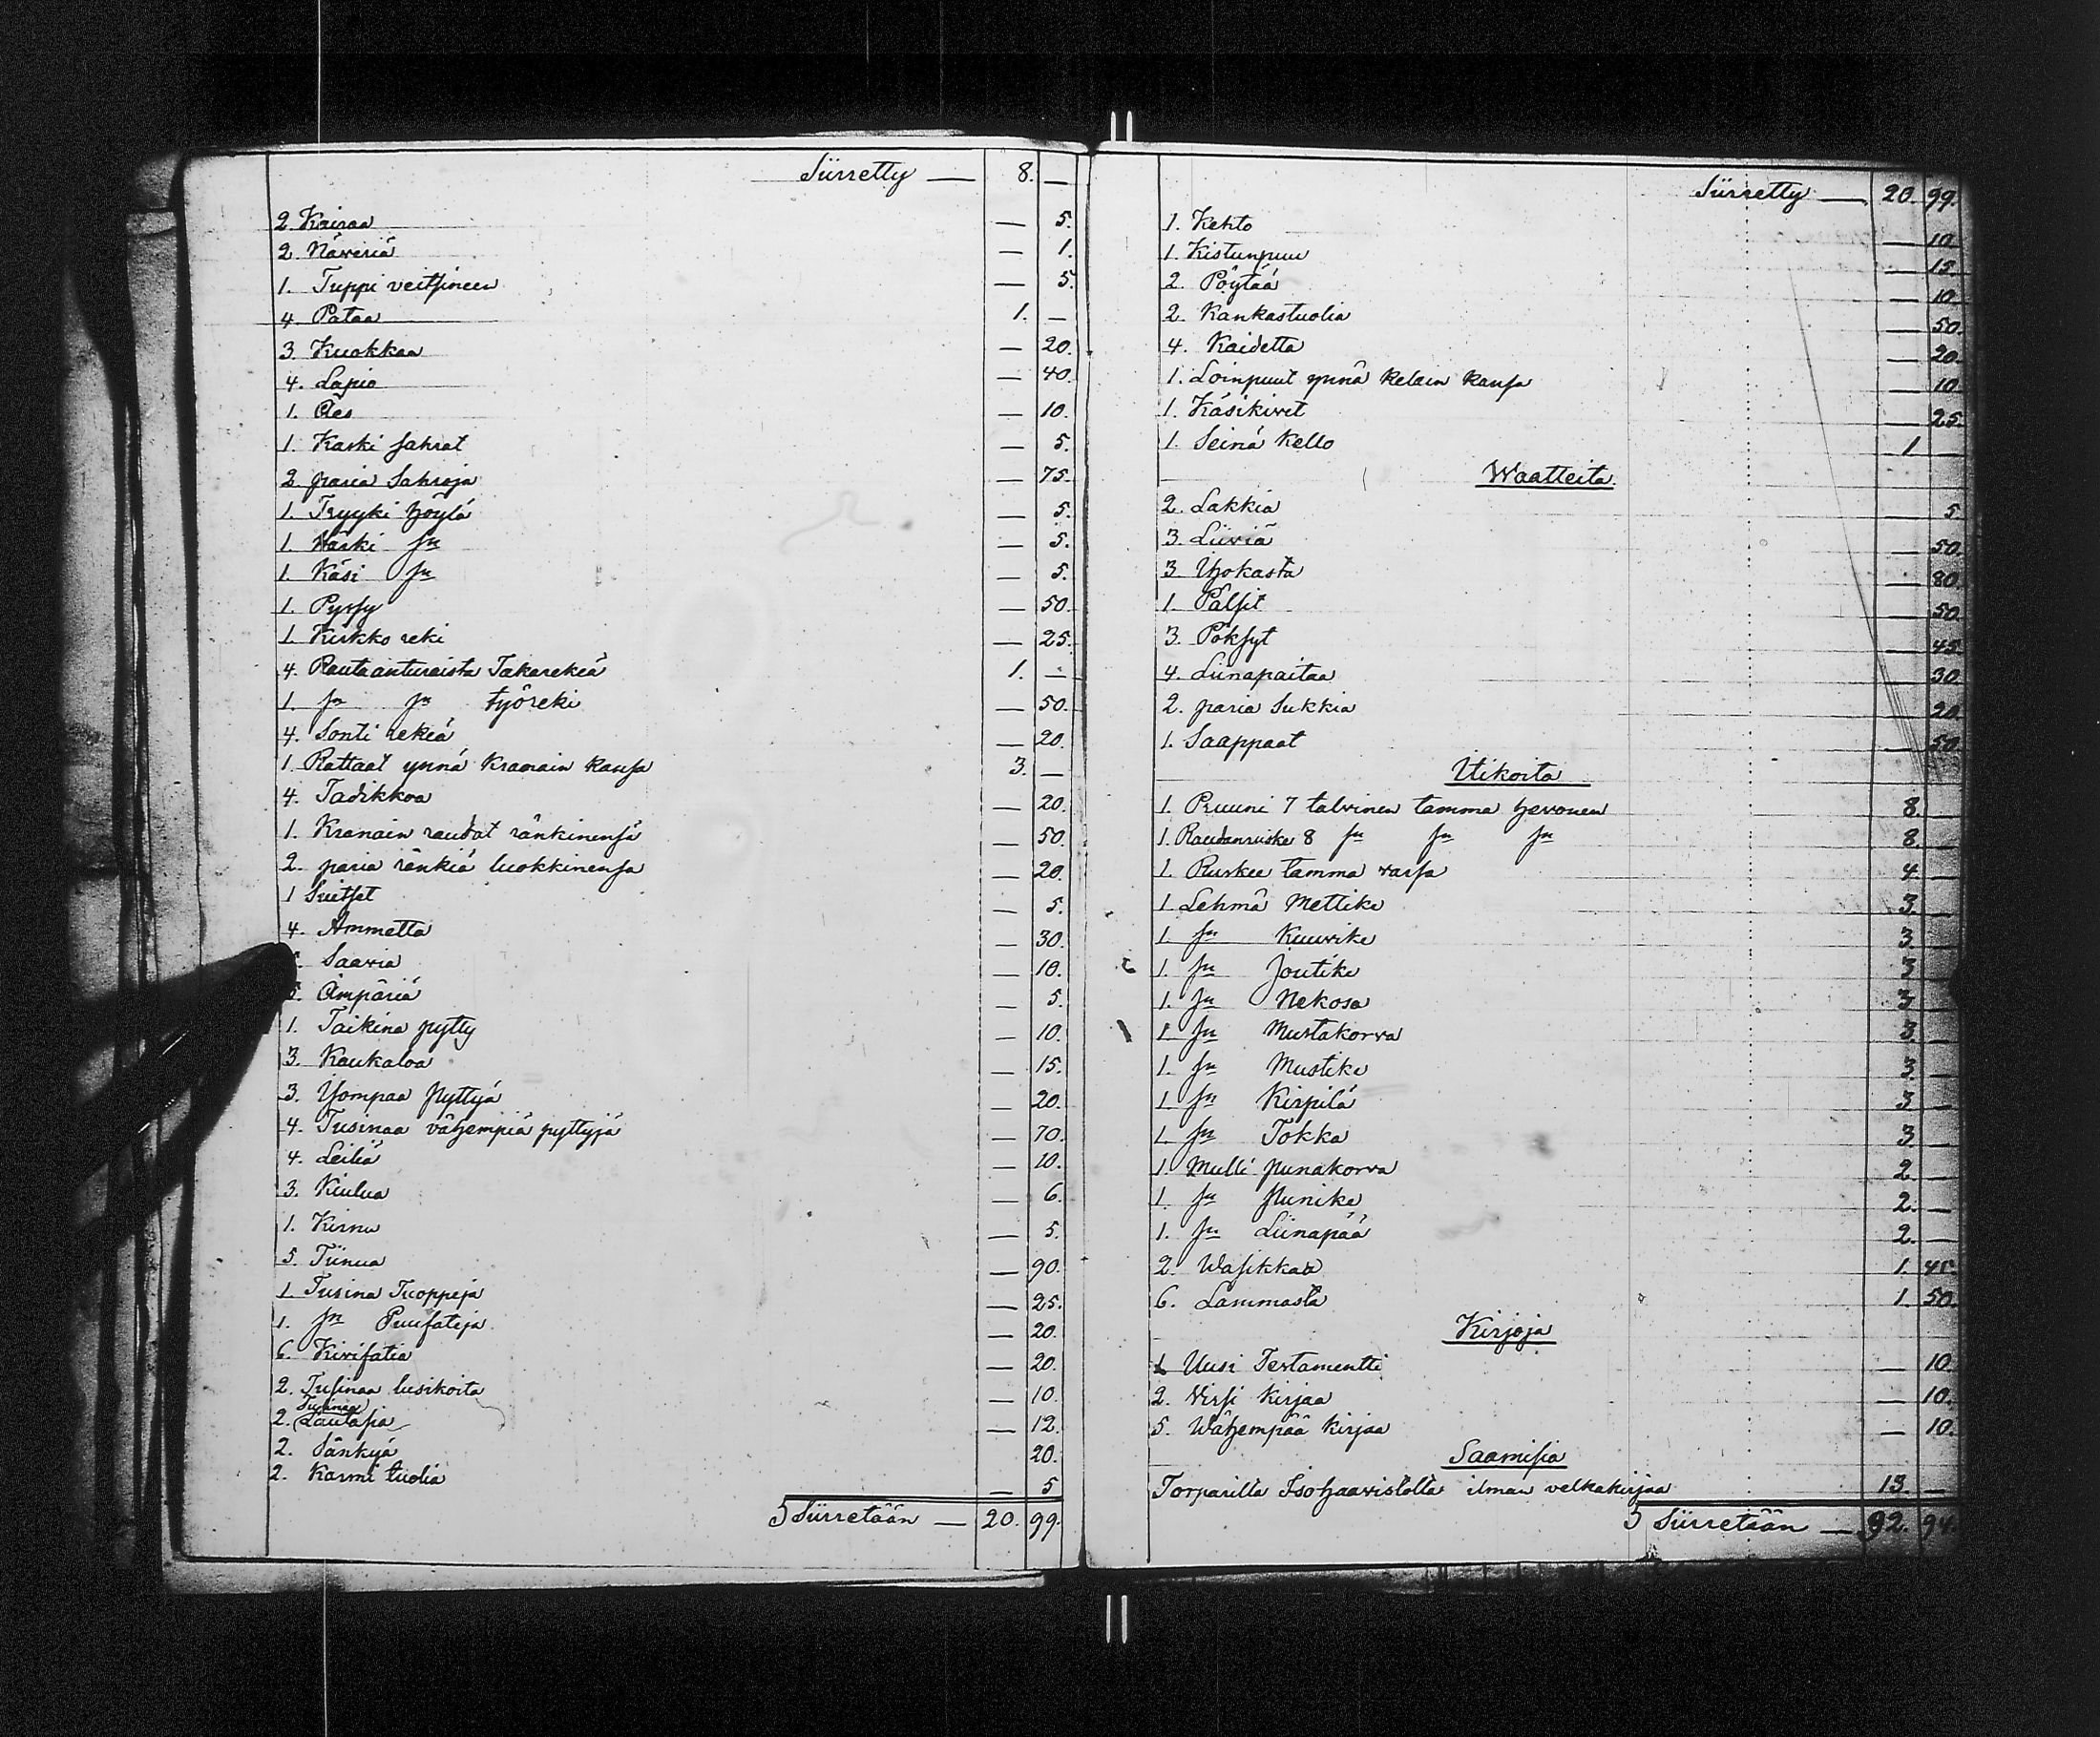 Siirretty — 8. —
2 Kairaa — 5.
2 Näveriä — 1.
1. Tuppi veitsineen — 5.
4. Pataa 1. —
3. Kuokkaa — 20.
4. Lapio — 40.
1. Aes — 10.
1. Kaski sahrat — 5.
2. paria Sahroja — 75.
1. Tryyki höylä — 5.
1. Harki sn — 5.
1. Käsi sn — 5.
1. Pyssy — 50.
1. Kirkko reki — 25.
4. Rautaanturaista Takarekeä 1. —
1. sn sn työreki — 50.
4. Sonti rekeä — 20.
1 Rattaat ynnä Kramain kansa 3. —
4. Tadikkoa — 20.
1. Kranain raudat ränkinensä — 50.
2. paria ränkiä luokkinensa — 20.
1 Suitset — 5.
4. Ammetta — 30.
Saavia — 10.
5. Ämpäriä — 5.
1. Taikina pytty — 10.
3. Kaukaloa — 15.
3. Hompaa Pyttyä — 20.
4. Tusinaa vähempiä pyttyjä — 70.
4. Leiliä — 10.
3. Kiulua — 6.
1. Kirnu — 5.
5. Tiinua — 90.
1 Tusina Tuoppeja — 25.
1. sn Puufateja — 20.
6. Kivifatia — 20.
2. Tusinaa lusikoita — 10.
Tusinaa
2. Lautasia — 12.
2. Sänkyä 20.
2. Karmi tuolia — 5
Siirretään — 20. 99.
Siirretty — 20. 99.
1. Kehto — 10
1 Kistunpuu — 15
2. Pöytää — 10
2. Kankastuolia — 50.
4. Kaidetta — 20
1. Loinpuut ynnä kelain kansa — 10
1. Käsikivet — 25.
1. Seinä Kello 1 —
Waatteita.
2. Lakkia — 5.
3. Liiviä — 50.
3. Ihokasta — 80.
1. Palsit — 50
3. Pöksyt — 45
4. Liinapaitaa — 30
2. paria Sukkia — 20
1. Saappaat — 50.
Itikoita
1. Pruuni 7 talvinen tamma hevonen 8. —
1. Raudanruiske 8 sn sn sn 8. —
1. Ruskee tamma varsa 4. —
1 Lehmä Mettike 3. —
1. sn Kuuvike 3. —
1. sn Joutike 3 —
1. sn Nekosa 3 —
1 sn Mustakorva 3. —
1. sn Mustike 3. —
1 sn Kirpilä 3 —
1. sn Tokka 3 —
1. Mulli punakorva 2 —
1. sn Punike 2. —
1. sn Liinapää 2. —
2. Wasikkaa 1. 45.
6. Lammasta 1. 50.
Kirjoja
1 Uusi Testamentti — 10.
2. Virsi Kirjaa — 10.
5. Wähempää Kirjaa — 10.
Saamisia
Torparilla Isohaavistolla ilman velkakirjaa 13. —
Siirretään — 92. 94.